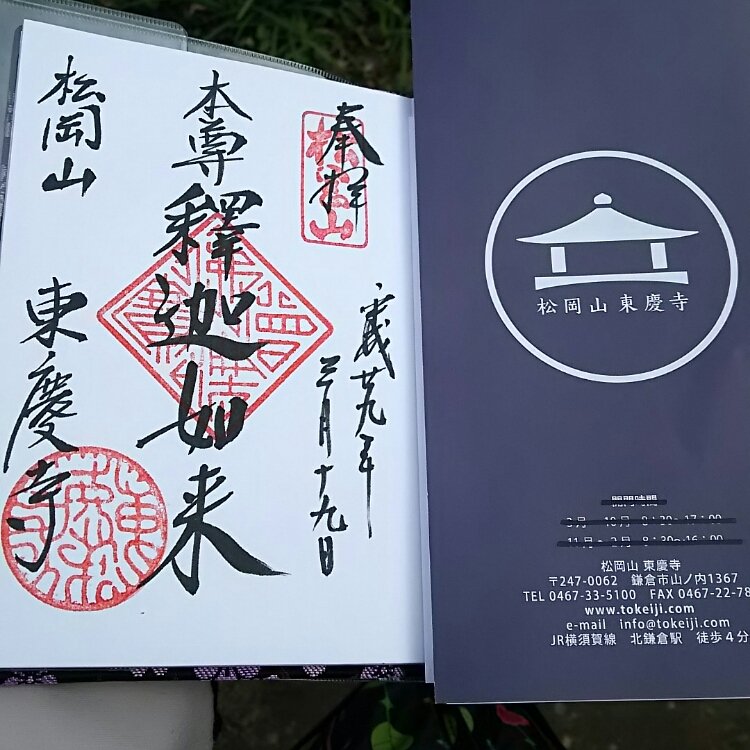 奉拝
松岡山
平成廿九年
三月十九日
本尊
釋迦如来
松岡山
東慶寺
松岡山 東慶寺
開門時間
3月～10月 8:30～17:00
11月～2月 8:30～16:00
松岡山 東慶寺
〒247-0062 鎌倉市山ノ内1367
TEL 0467-33-5100 FAX 0467-22-78
www.tokeiji.com
e-mail info@tokeiji.com
JR横須賀線 北鎌倉駅 徒歩4分